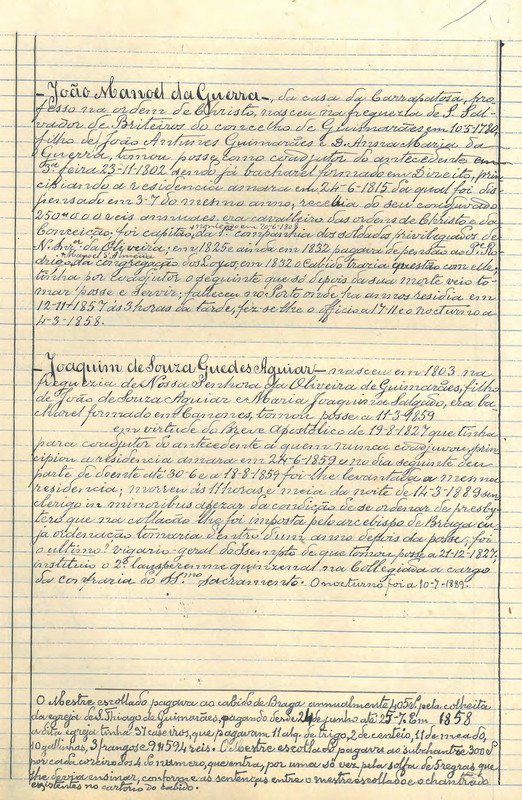 - João Manoel da Guerra -, da casa da Carrapatosa, pro-
fesso na ordem de Christo, nasceu na freguezia de S. Sal-
vador de Briteiros do concelho de Guimarães em 10-5-1780,
filho de João Antunes Guimarães e D. Anna Maria da
Guerra, tomou posse como coadjutor do antecedente em
3ª feira 23-11-1802 sendo já bacharel formado em Direito, prin-
cipiando a residencia amara em 24-6-1815 da qual foi dis-
pensado em 3-7 do mesmo anno, recebia do seu coadjuvado
250$000 reis annuaes. era cavalleiro das ordens de Christo e da
Conceição, foi capitão, da 1ª companhia dos soldados privilegiados de
N. Snrª da Oliveira, em 1825 e ainda em 1832 pagava de pensão ao Pe Ro-
drigo da congregação dos Loyos, em 1832 o Cabido trazia questão com elle;
tinha por coadjutor o seguinte que só depois da sua morte veio to-
mar posse e servir; falleceu no Porto onde ha annos residia em
12-11-1857 ás 3 horas da tarde, fez-se-lhe o officio a 17-11 e o nocturno a
4-3-1858.
- Joaquim de Souza Guedes Aguiar - nasceu em 1803 na
freguezia de Nossa Senhora da Oliveira de Guimarães, filho
de João de Souza Aguiar e Maria Joaquina Salgado, era ba-
charel formado em Canones, tomou posse a 11-3-1859
em virtude do Breve Apostolico de 19-8-1827 que tinha
para coadjutor do antecedente a quem nunca coadjuvou, prin-
cipiou a residencia amara em 24-6-1859 e no dia seguinte deu
parte de doente até 30-6 e a 18-8-1859 foi-lhe levantada a mesma
residencia; morreu ás 11 horas e meia da noite de 14-3-1889 sen-
do clerigo in minoribus apezar da condição de se ordenar de presby-
tero que na collação lhe foi imposta pelo arcebispo de Braga cu-
ja ordenação tomaria dentro d'um anno depois da posse; foi
o ultimo? vigario-geral do Isempto de que tomou posse a 21-12-1827,
instituiu o 2º lausperenne quinzenal na Collegiada a cargo
da confraria do SS.mo Sacramento. O nocturno foi a 10-7-1889.
O Mestre escollado pagava ao cabido de Braga annualmente 405 rs. pela colheita
da egreja de S. Thiago de Guimarães, pagando desde 24 de junho até 25-7. Em 1858
a dita egreja tinha 31 caseiros, que pagavam 11 alq. de trigo, 2 de centeio, 11 de meado,
10 gallinhas, 3 frangos e 9$594 reis. O Mestre escollado pagava ao subchantre 300 rs.
por cada coreiro dos 4 do numero, que entra, por uma só vez pela solfa de 3 regras que
lhe devia ensinar, conforme as sentenças entre o mestre escollado e o chantrado
existentes no cartorio do cabido.